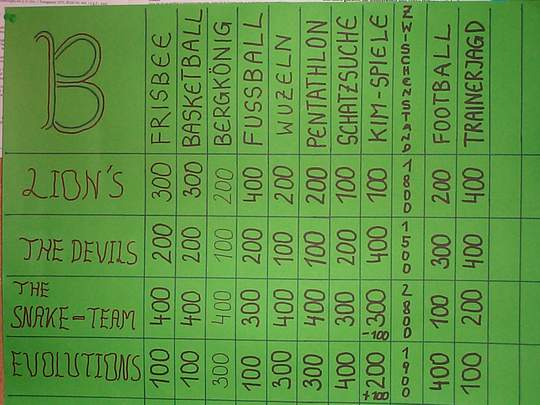 B FRISBEE BASKETBALL BERGKÖNIG FUSSBALL WUZELN PENTATHLON SCHATZSUCHE KIM-SPIELE ZWISCHENSTAND FOOTBALL TRAINERJAGD
LION'S 300 300 200 400 200 200 100 100 1800 200 400
THE DEVILS 200 200 100 200 100 100 200 400 1500 300 400
THE
SNAKE-TEAM 400 400 400 300 400 400 300 300 -100 2800 100 200
EVOLUTIONS 100 100 300 100 300 300 400 200 +100 1900 400 100